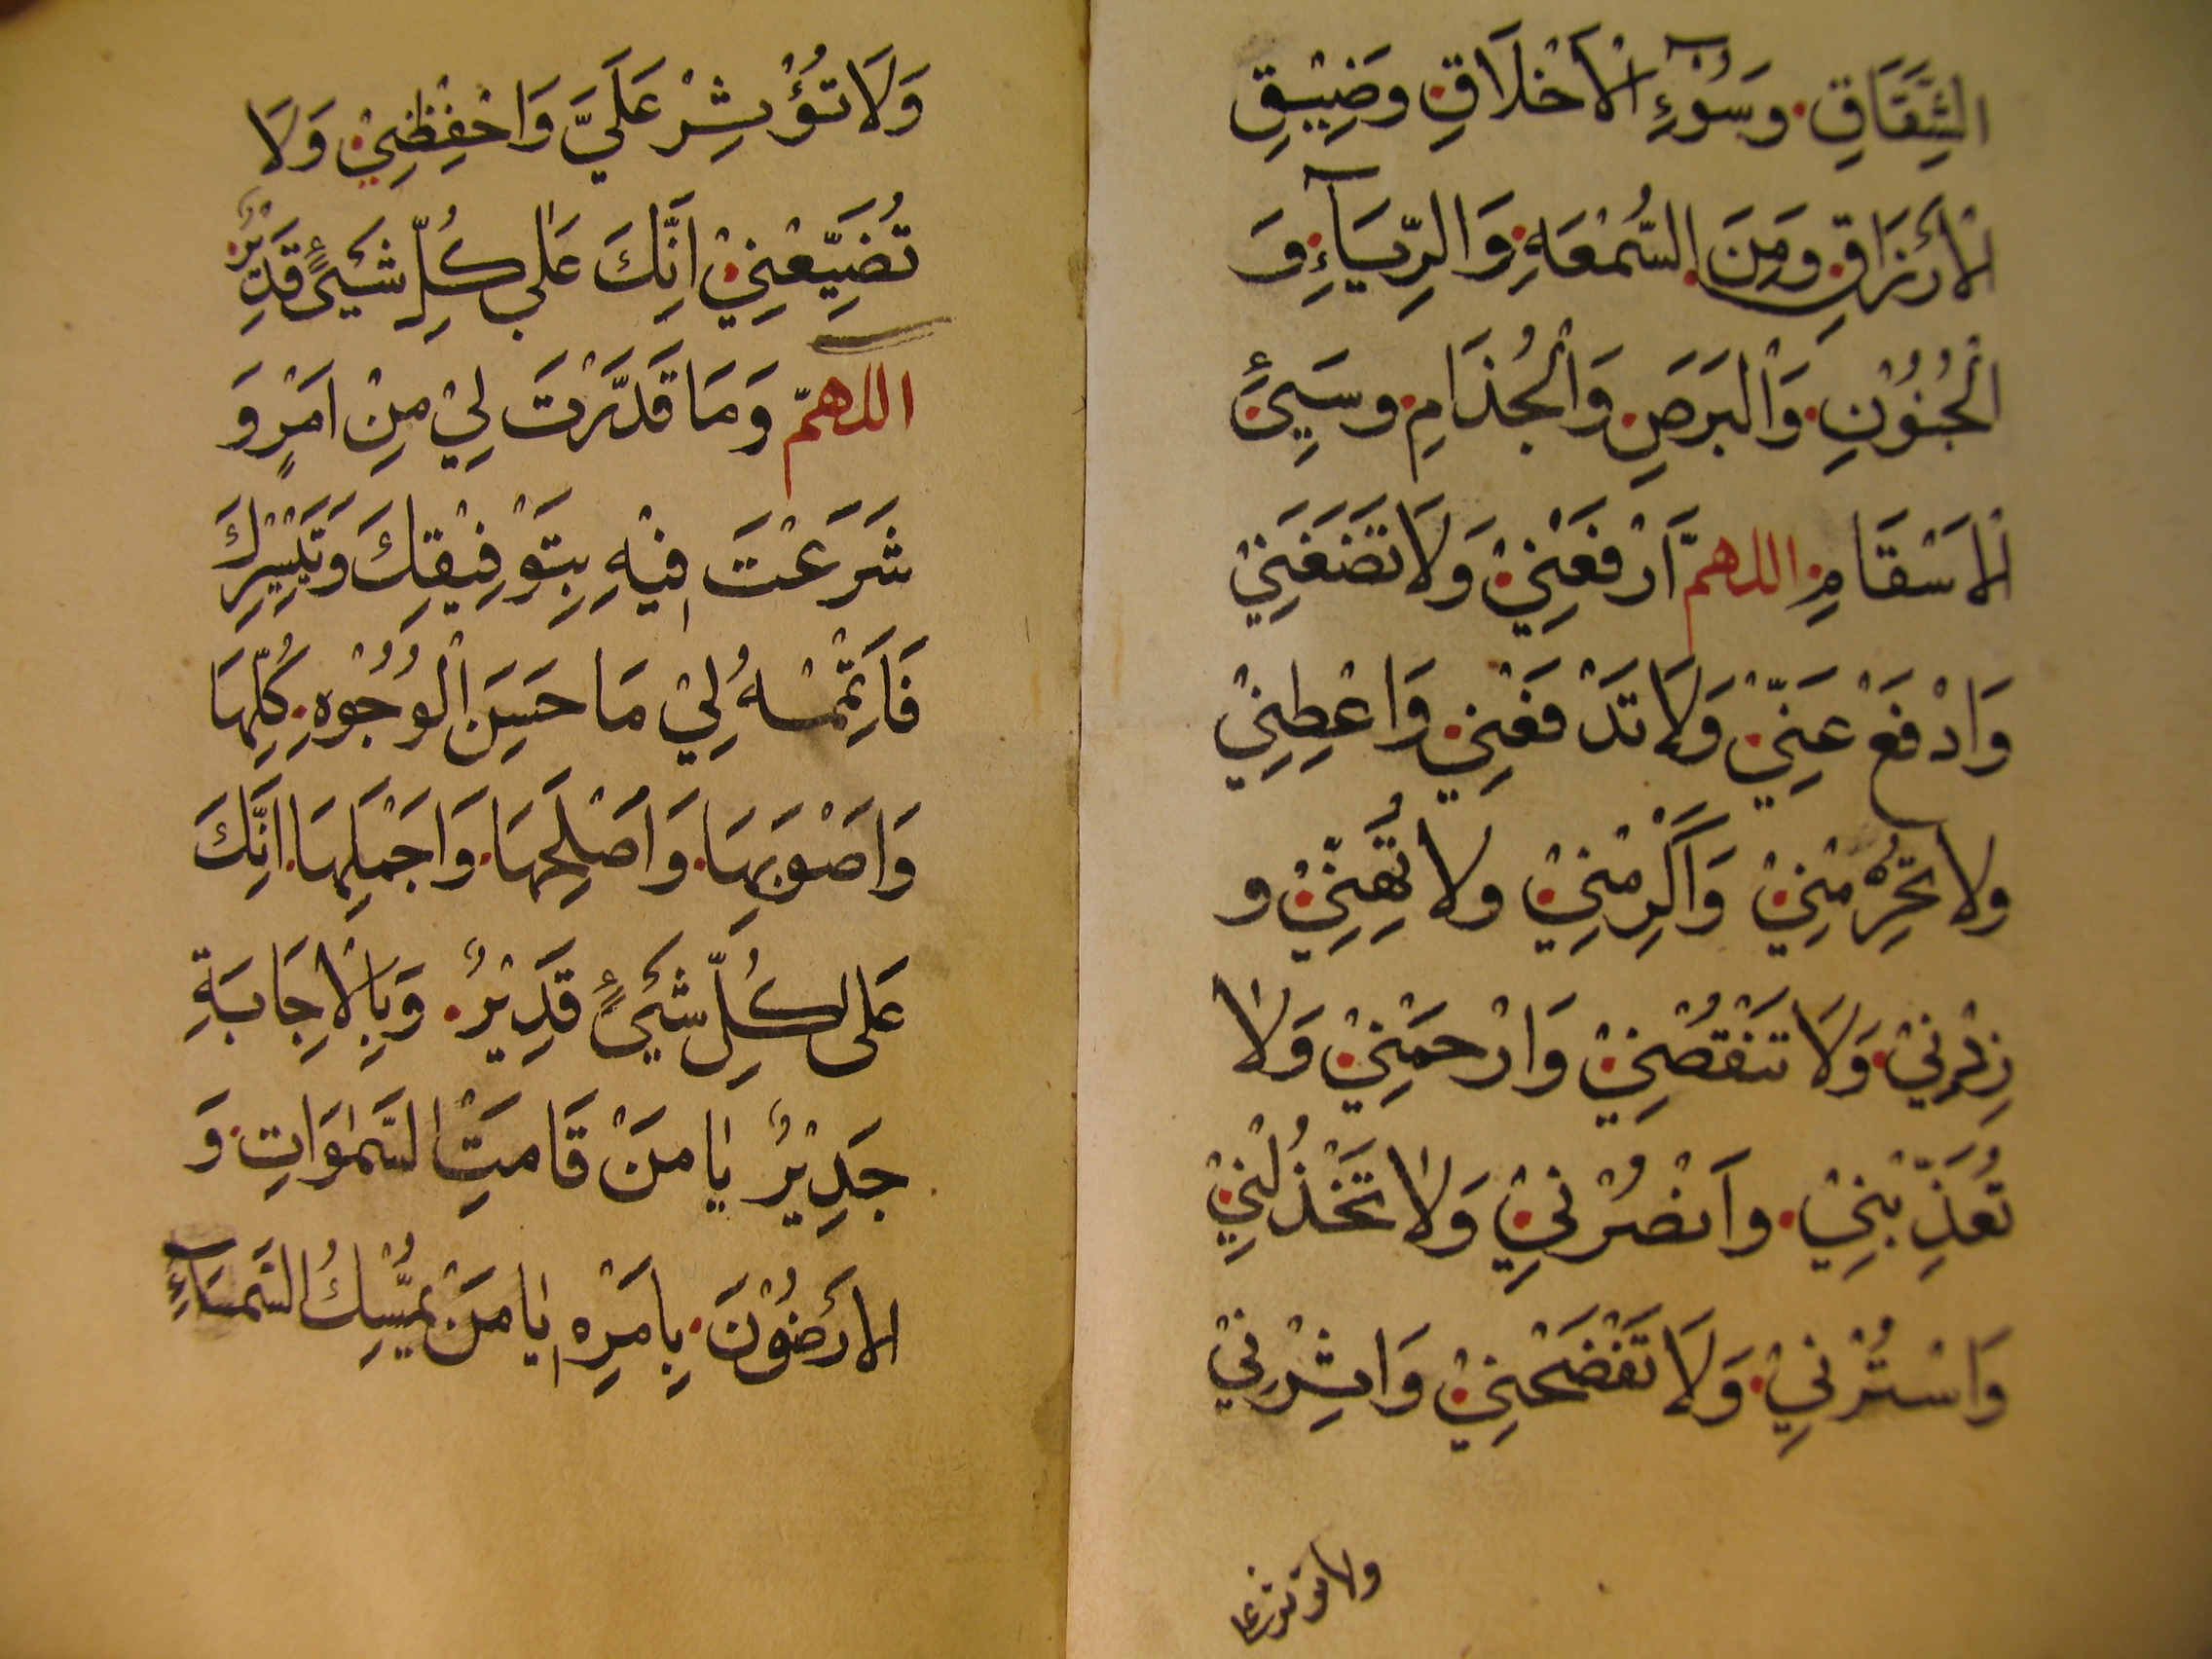 الشِّقَاقِ وَسُوْٓءِ الْاَخْلَاقِ وَضِيْقِ
الْاَرْزَاقِ وَمِنَ السُّمْعَةِ وَالرِّيَآءِ وَ
الْجُنُوْنِ وَالْبَرَصِ وَالْجُذَامِ وَسَيِّئِ
الْاَسْقَامِ اللهمّ اَرْفَعْنِيْ وَلَا تَضَعْنِيْ
وَادْفَعْ عَنِّيْ وَلَا تَدْفَعْنِيْ وَاعْطِنِيْ
وَلَا تَحْرِمْنِيْ وَاَكْرِمْنِيْ وَلَا تُهِنِّيْ وَ
زِدْنِيْ وَلَا تَنْقُصْنِيْ وَارْحَمْنِيْ وَلَا
تُعَذِّبْنِيْ وَانْصُرْنِيْ وَلَا تَخْذُلْنِيْ
وَاسْتُرْنِيْ وَلَا تَفْضَحْنِيْ وَاٰثِرْنِيْ
ولا تؤثر علي
وَلَا تُؤْثِرْ عَلَيَّ وَاحْفِظْنِيْ وَلَا
تُضَيِّعْنِيْ اِنَّكَ عَلٰى كُلِّ شَيْئٍ قَدِيْرٌ
اللهمّ وَمَا قَدَّرْتَ لِيْ مِنْ اَمْرٍ وَ
شَرَعْتَ فِيْهِ بِتَوْفِيْقِكَ وَتَيْسِيْرِكَ
فَاَتِمْهُ لِيْ مَا حَسَنِ الْوُجُوْهِ كُلِّهَا
وَاَصْوَبِهَا وَاَصْلَحِهَا وَاَجْمَلِهَا اِنَّكَ
عَلٰى كُلِّ شَيْئٍ قَدِيْرٌ وَبِالْاِجَابَةِ
جَدِيْرٌ يَا مَنْ قَامَتِ السَّمٰوَاتِ وَ
الْاَرَضُوْنَ بِاَمْرِهِ يَا مَنْ يُمْسِكُ السَّمَآءِ